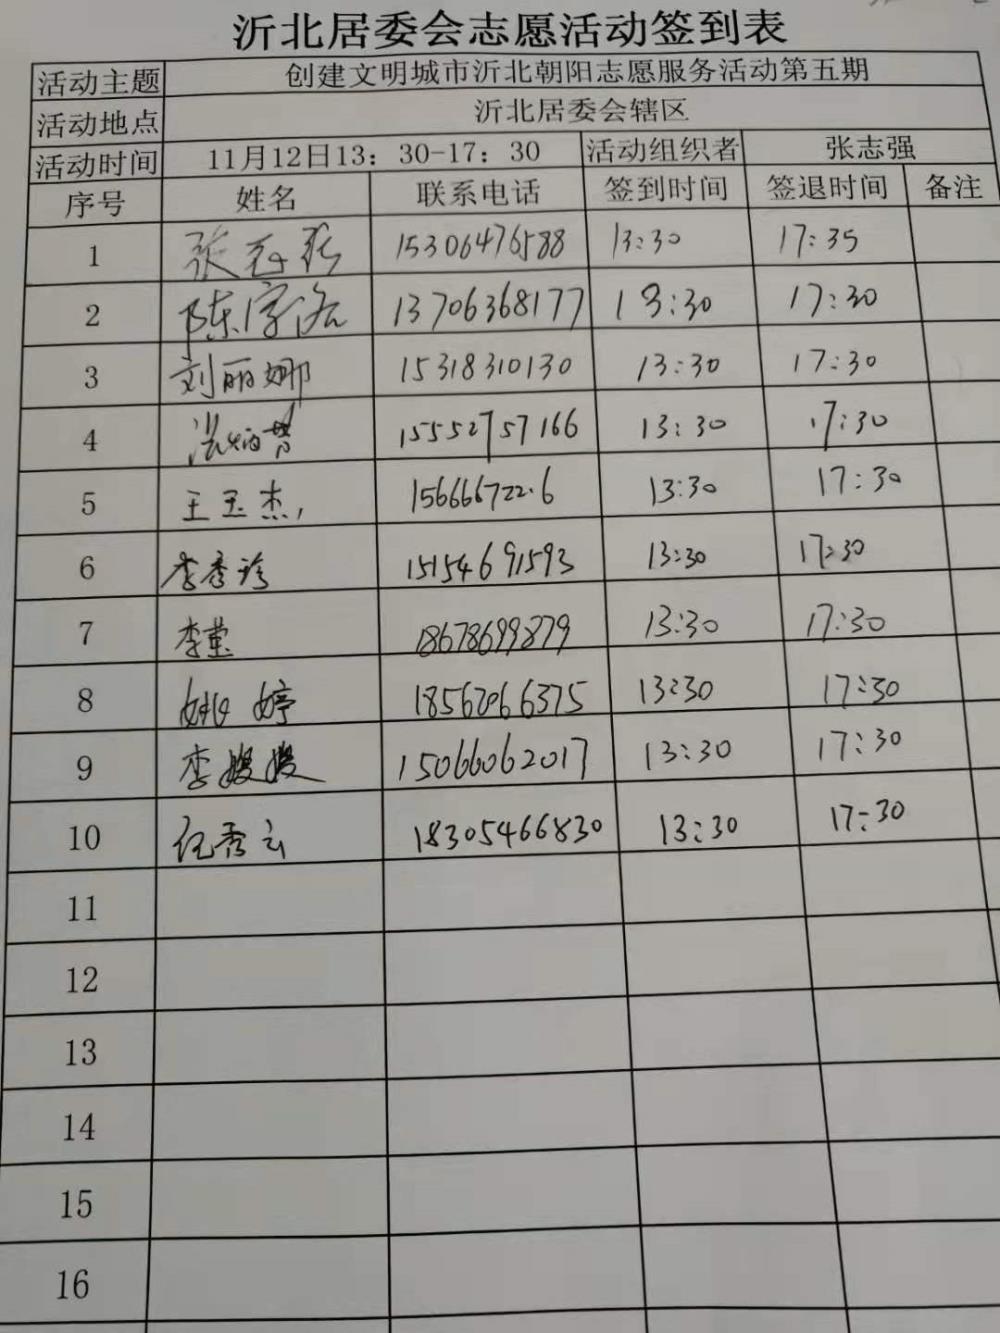 沂北居委会志愿活动签到表
活动主题 创建文明城市沂北朝阳志愿服务活动第五期
活动地点 沂北居委会辖区
活动时间 11月12日13：30-17：30 活动组织者 张志强
序号 姓名 联系电话 签到时间 签退时间 备注
1 张志强 15306476588 13:30 17:35
2 陈学浩 13706368177 13:30 17:30
3 刘丽娜 15318310130 13:30 17:30
4 15552757166 13:30 17:30
5 王玉杰 13:30 17:30
6 李秀珍 15154691593 13:30 17:30
7 李莹 18678699879 13:30 17:30
8 姚婷 13:30 17:30
9 李嫚嫚 15066062017 13:30 17:30
10 任秀云 18305466830 13:30 17:30
11
12
13
14
15
16